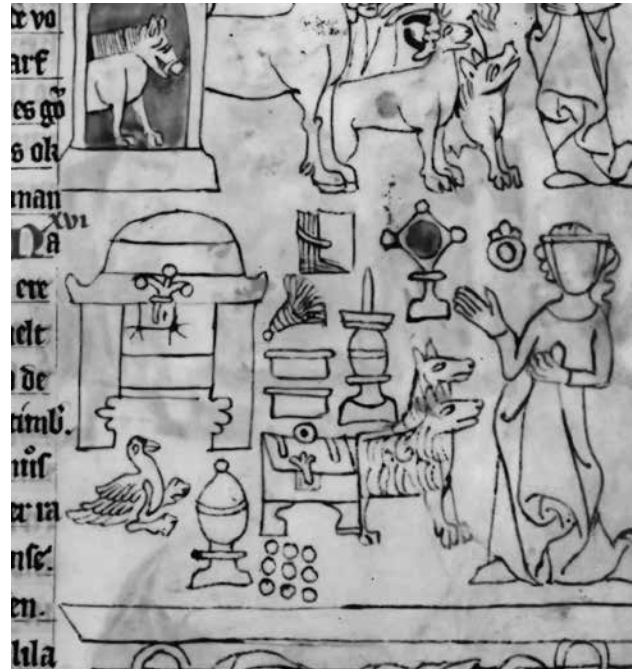 arf
es gō
s ok
man
XVI
Na
ere
helt
de
timb.
er ra
nse.
en.
lila